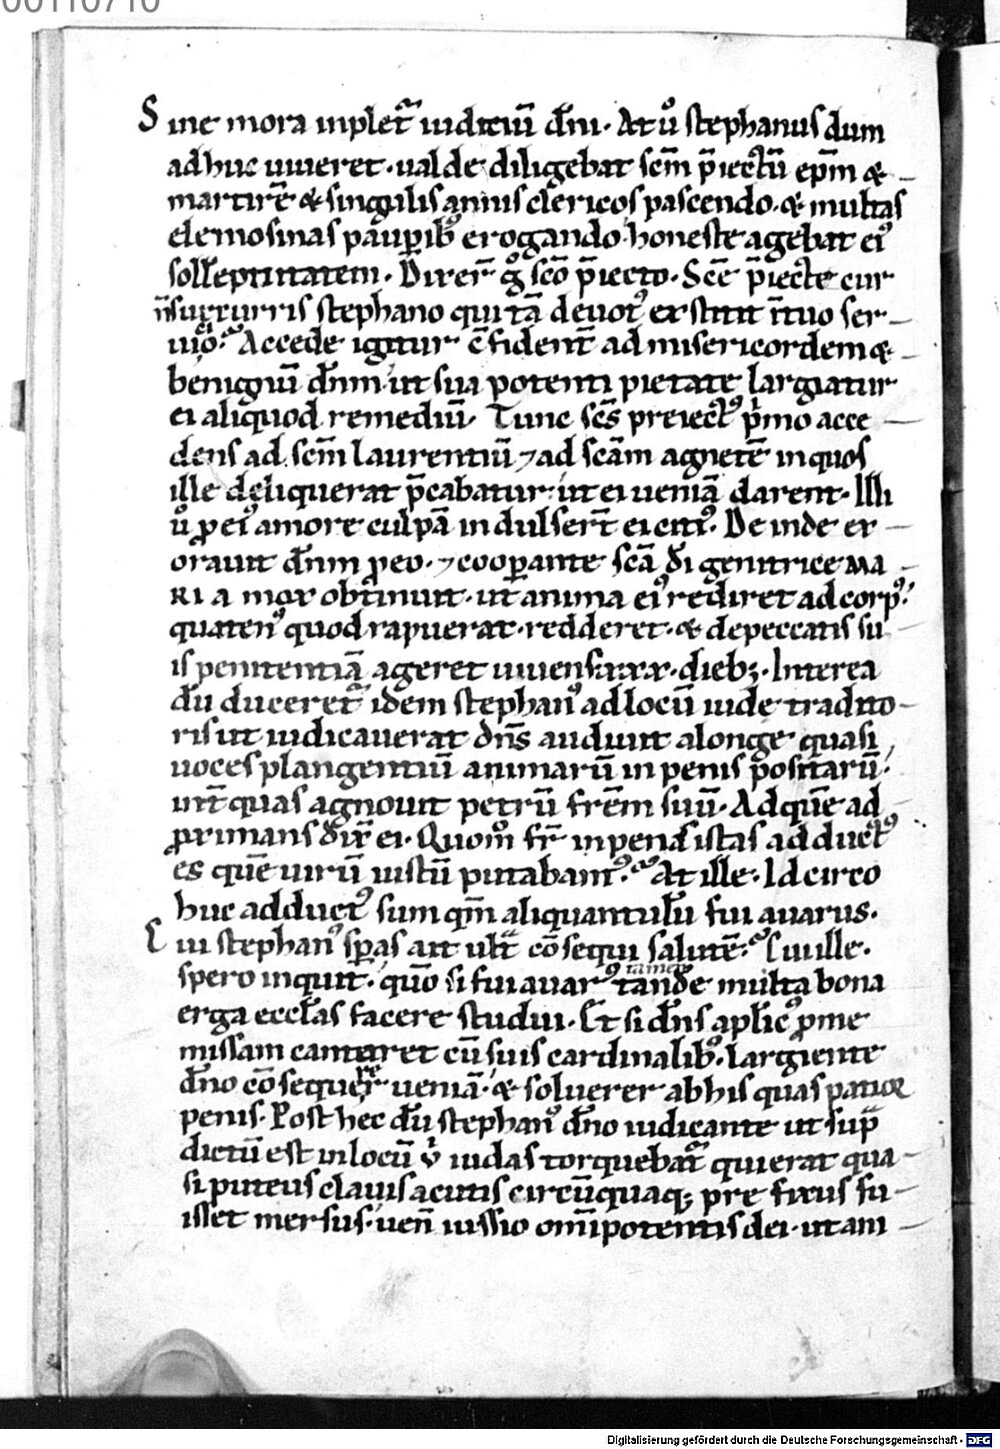 00110710
Sine mora inplet᷑ iudiciū dn̄i. At ů stephanus dum
adhuc uiueret. ualde diligebat scm̄ p̄iectū epm̄ &
martirē & singulis annis clericos pascendo. & multas
elemosinas paupib; erogando honeste agebat ei᷒
sollēpnitatem. Dixer̄ g̊ scō p̄iecto. Scē p̄iecte cur
n̄ succurris stephano qui tā deuot᷒ exstitit ī tuo ser
uitio. Accede igitur c̄fident̄ ad misericordem &
benignū dn̄m ut sua potenti pietate largiatur
ei aliquod remediū. Tunc scs̄ preiect᷒ p̊mo acce
dens ad scm̄ laurentiū ⁊ ad scām agnetē in quos
ille deliquerat p̄cabatur ut ei ueniā darent. Illi
ů ꝑ ei᷒ amore culpā indulsert̄ ei cit᷒. Deinde ex
orauit dn̄m ꝑ eo. ⁊ cooꝑante scā di genitrice MA
RIA mox obtinuit. ut anima ei᷒ rediret ad corp᷒.
quaten᷒ quod rapuerat. redderet. & de peccatis su
is penitentiā ageret uiuens xxx. dieb;. Interea
dū duceret᷑ idem stephan᷒ ad locū iude tradito
ris ut iudicauerat dn̄s audiuit a longe quasi
uoces plangentiū animarū in penis positarū.
int̄ quas agnouit petrū frēm suū. Ad quē ad
ꝓximans dix̄ ei. Quom̊ fr̄ in penas istas adduct᷒
es quē uirū iustū putabam᷒. At ille. Idcirco
huc adduct᷒ sum qm̄ aliquantulū fui auarus.
Cui stephan᷒ speras ait ult᷑ cōsequi salutē. Cui ille.
spero inquit. quō si fui auar᷒ tamen tande multa bona
erga eccl̄as facere studui. Et si dn̄s aplic᷒ ꝓ me
missam cantaret cū suis cardinalib᷒. largiente
dn̄o cōsequerer ueniā. & soluerer ab his quas patior
penis. Post hec dū stephan᷒ dn̄o iudicante ut sup̄
dictū est in locū ů iudas torquebat᷑ qui erat qua
si puteus clauis acutis circūquaq; prefixus fu
isset mersus. uen̄ iussio om̄ipotentis dei. ut ani
Digitalisierung gefördert durch die Deutsche Forschungsgemeinschaft - DFG